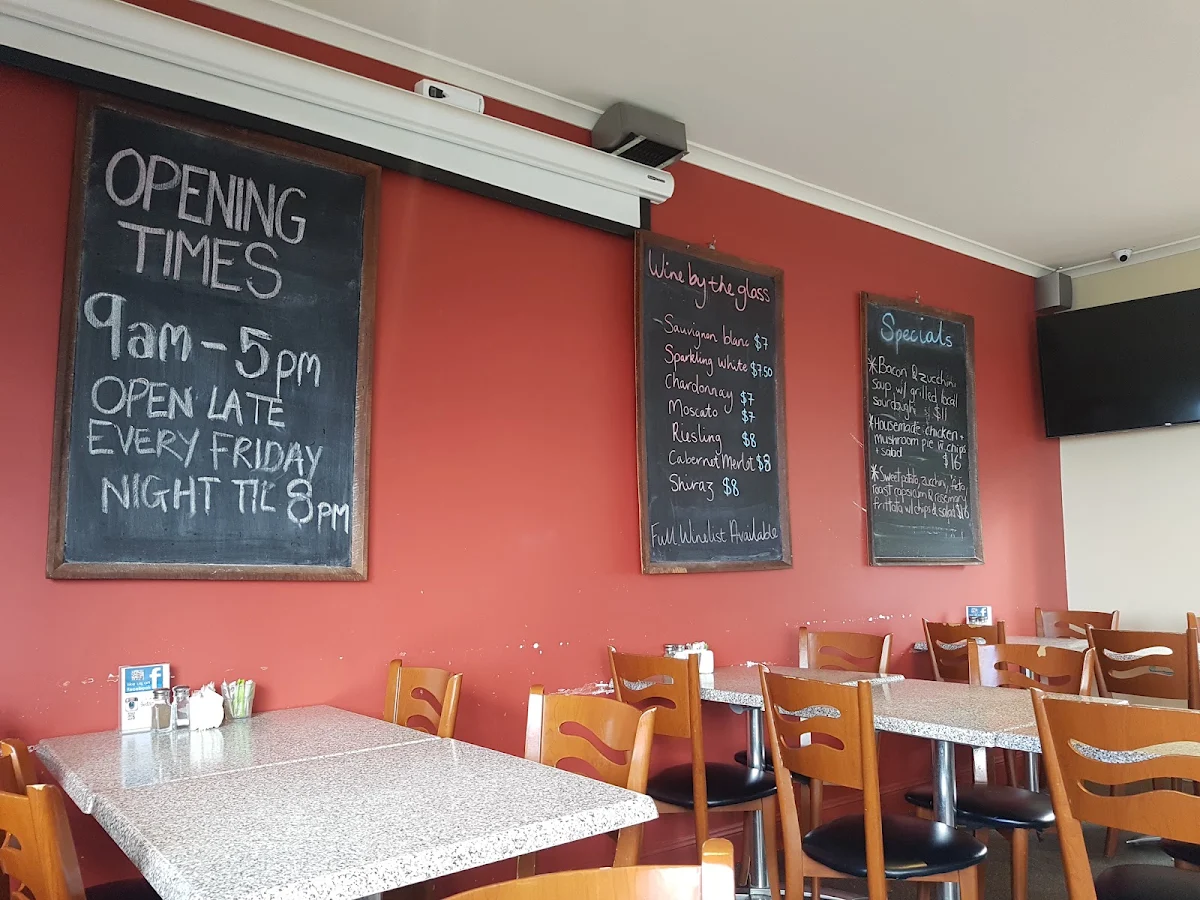 OPENING
TIMES
9am - 5pm
OPEN LATE
EVERY FRIDAY
NIGHT TIL 8pm
Wine by the glass
- Sauvignon blanc $7
Sparkling White $7.50
Chardonnay $7
Moscato $7
Riesling $8
Cabernet Merlot $8
Shiraz $8
Full Winelist Available
Specials
* Bacon & zucchini
soup w/ grilled local
sourdough $11
* Housemade chicken +
mushroom pie w chips
+ salad $16
* Sweet potato, zucchini, feta,
roast capsicum & rosemary
frittata w/ chips & salad $16
f